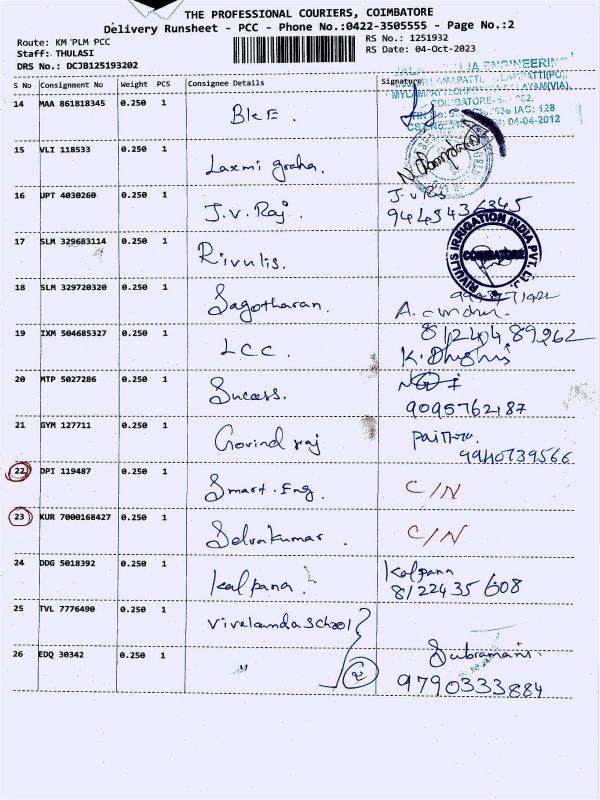 THE PROFESSIONAL COURIERS, COIMBATORE
Delivery Runsheet - PCC - Phone No.:0422-3505555 - Page No.:2
Route: KM PLM PCC
RS No.: 1251932
Staff: THULASI
RS Date: 04-Oct-2023
DRS No.: DCJB125193202
S No Consignment No Weight PCS Consignee Details Signature
14 MAA 861818345 0.250 1 BLE.
COIMBATORE-
04-04-2012
15 VLI 118533 0.250 1 Laxmi graha.
16 UPT 4030260 0.250 1 J.V. Raj.
17 SLM 329683114 0.250 1 Rivulis.
RIVULIS IRRIGATION INDIA PVT. LTD.
COIMBATORE
18 SLM 329720320 0.250 1 Sagotharan.
19 IXM 504685327 0.250 1 LCC. 8124048 89262
20 MTP 5027286 0.250 1 Sucess.
9095762187
21 GYM 127711 0.250 1 Govind raj
9940739566
22 DPI 119487 0.250 1 Smart. Eng. C/N
23 KUR 7000168427 0.250 1 Selvakumar. C/N
24 DDG 5018392 0.250 1 Kalpana Kalpana
8122435608
25 TVL 7776490 0.250 1 Vivekanda School
26 EDQ 30342 0.250 1 2 Subramani.
9790333884